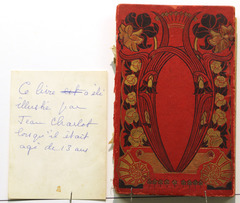 Ce livre a été
illustré par
Jean Charlot
lorsqu'il était
agé de 13 ans